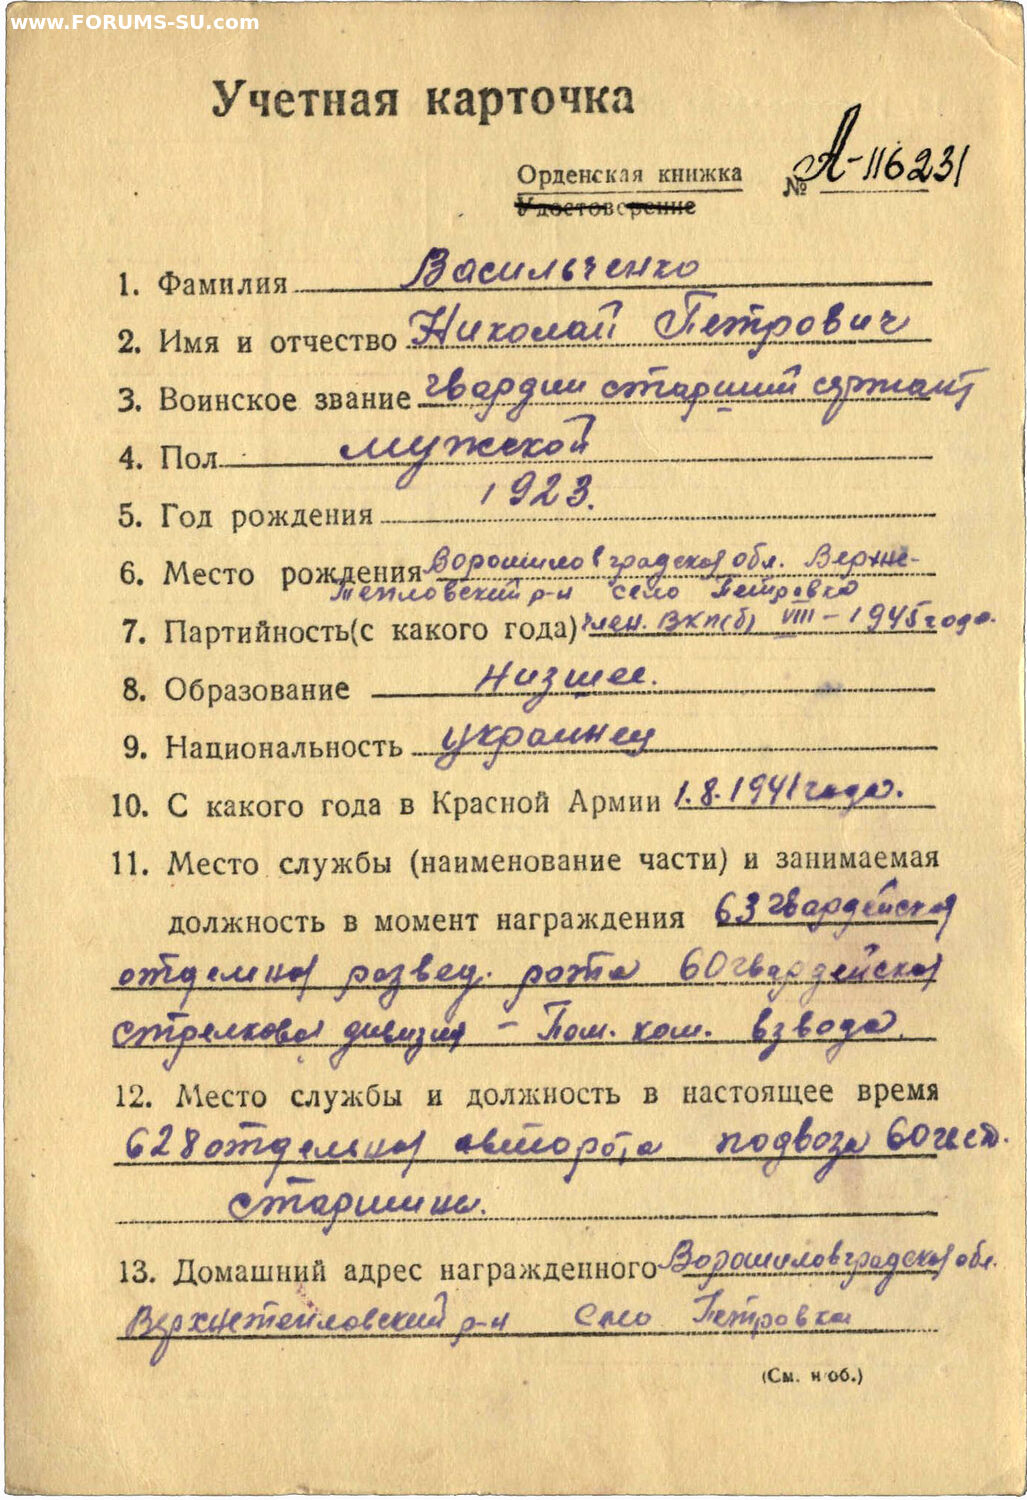 www.FORUMS-SU.com
Учетная карточка
Орденская книжка № А-116231
Удостоверение
1. Фамилия Васильченко
2. Имя и отчество Николай Петрович
3. Воинское звание гвардии старший сержант
4. Пол мужской
5. Год рождения 1923.
6. Место рождения Ворошиловградской обл. Верхне-
Тепловский р-н село Петровка
7. Партийность(с какого года) член. ВКП(б) VIII – 1945 года.
8. Образование Низшее.
9. Национальность украинец
10. С какого года в Красной Армии 1.8.1941 года.
11. Место службы (наименование части) и занимаемая
должность в момент награждения 63 гвардейская
отдельная развед. рота 60 гвардейской
стрелковой дивизии – Пом. ком. взвода.
12. Место службы и должность в настоящее время
628 отдельная авторота подвоза 60 гв.сд.
старшины.
13. Домашний адрес награжденного Ворошиловградской обл.
Верхнетепловский р-н село Петровка
(См. н об.)